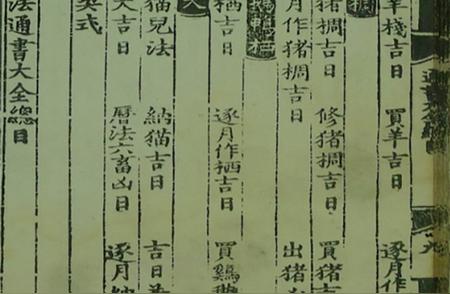 羊棧吉日 買羊吉日 逐月作
猪椆吉日 修猪椆吉日 買猪吉
月作猪椆吉日 出猪
栖吉日 逐月作栖吉日 買鷄
猫兒法 納猫吉日 吉日
犬吉日 曆法六畜凶日 逐月
式
法通書大全總目